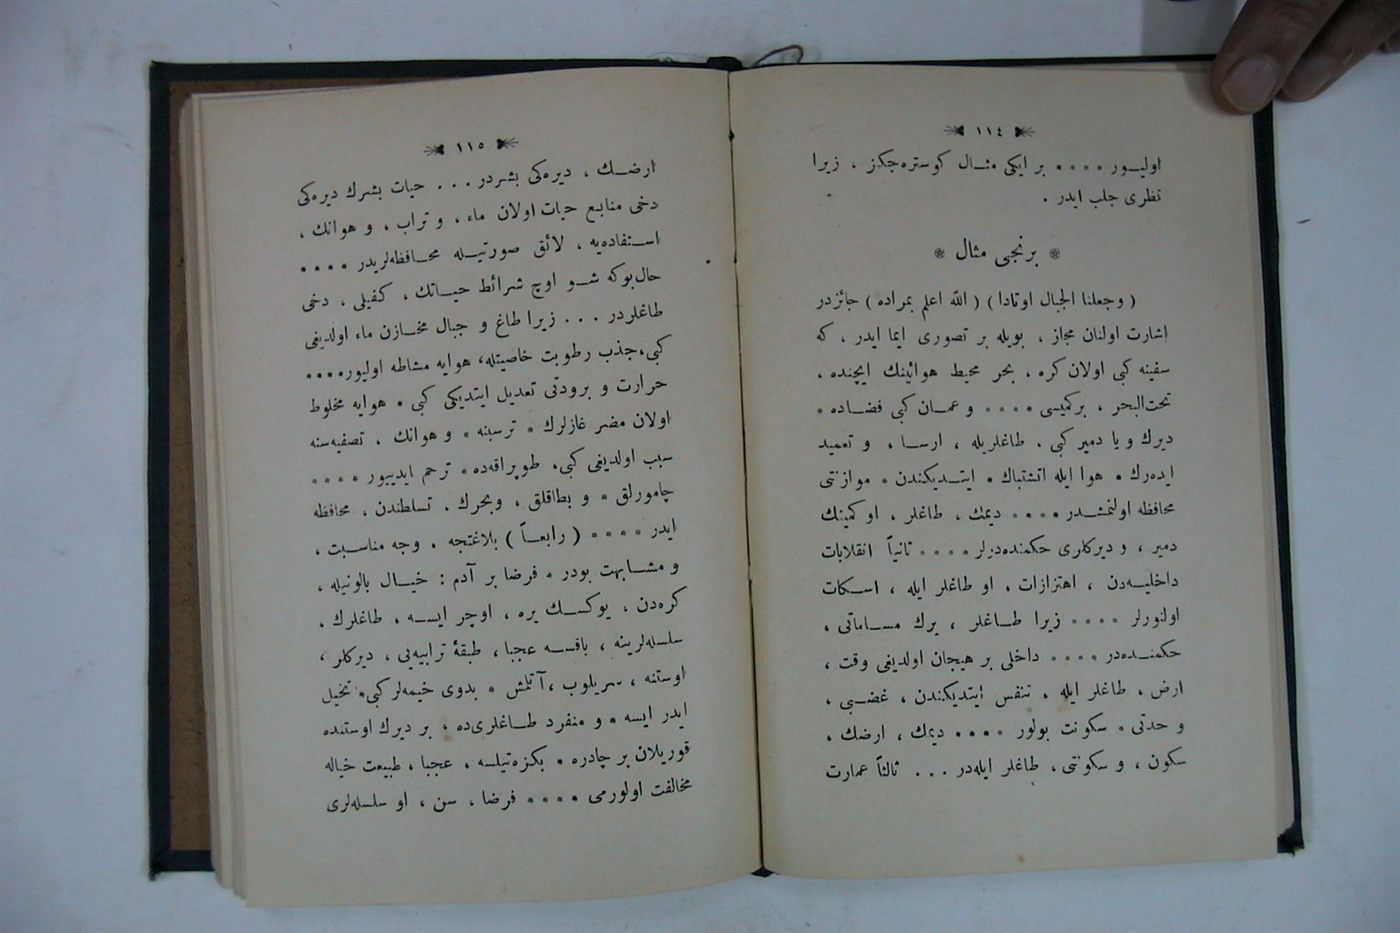 ١١٤
اوليور .... بر ايكى مثال كوستره‌جكز ، زيرا
نظرى جلب ايدر .
برنجى مثال
( وجعلنا الجبال اوتادا ) ( الله اعلم بمراده ) جائزدر
اشارت اولنان مجاز ، بويله بر تصورى ايما ايدر ، كه
سفينه كبى اولان كره ، بحر محيط هوائينك ايچنده ،
تحت‌البحر ، بركميسى .... و عمان كبى فضاده .
ديرك و يا دمير كبى ، طاغلريله ، ارسا ، و تعميد
ايده‌رك . هوا ايله اتشتباك . ايتديكندن . موازنتى
محافظه اولنمشدر .... ديمك ، طاغلر ، او كمينك
دمير ، و ديركلرى حكمنده‌درلر .... ثانياً انقلابات
داخليه‌دن ، اهتزازات ، او طاغلر ايله ، اسكات
اولنورلر .... زيرا طاغلر ، يرك مساماتى ،
حكمنده‌در .... داخلى بر هيجان اولديغى وقت ،
ارض ، طاغلر ايله ، تنفس ايتديكندن ، غضبى ،
و حدتى . سكونت بولور .... ديمك ، ارضك ،
سكون ، و سكونتى ، طاغلر ايله‌در ... ثالثاً عمارت
١١٥
ارضك ، ديره‌كى بشردر ... حيات بشرك ديره‌كى
دخى منابع حيات اولان ماء ، و تراب ، و هوانك ،
استفاده‌يه ، لائق صورتيله محافظه‌لريدر ....
حال‌بوكه شو اوچ شرائط حياتك ، كفيلى ، دخى
طاغلردر ... زيرا طاغ و جبال مخازن ماء اولديغى
كبى، جذب رطوبت خاصيتله، هوايه مشاطه اوليور....
حرارت و برودتى تعديل ايتديكى كبى . هوايه مخلوط
اولان مضر غازلرك . ترسبنه . و هوانك ، تصفيه‌سنه
سبب اولديغى كبى، طوپراقه‌ده . ترحم ايدييور ....
چامورلق . و بطاقلق ، وبحرك ، تسلطندن ، محافظه
ايدر .... ( رابعاً ) بلاغتجه ، وجه مناسبت ،
و مشابهت بودر . فرضا بر آدم : خيال بالونيله ،
كره‌دن ، يوكسك يره ، اوچر ايسه ، طاغلرك ،
سلسله‌لرينه ، باقسه عجبا ، طبقهٔ ترابيه‌يى ، ديركلر ،
اوستنه ، سريلوب ، آتلمش . بدوى خيمه‌لر كبى. تخيل
ايدر ايسه . و منفرد طاغلرى‌ده ، بر ديرك اوستنده
قوريلان بر چادره . بكزه‌تيلسه ، عجبا ، طبيعت خياله
مخالفت اولورمى .... فرضا ، سن ، او سلسله‌لرى